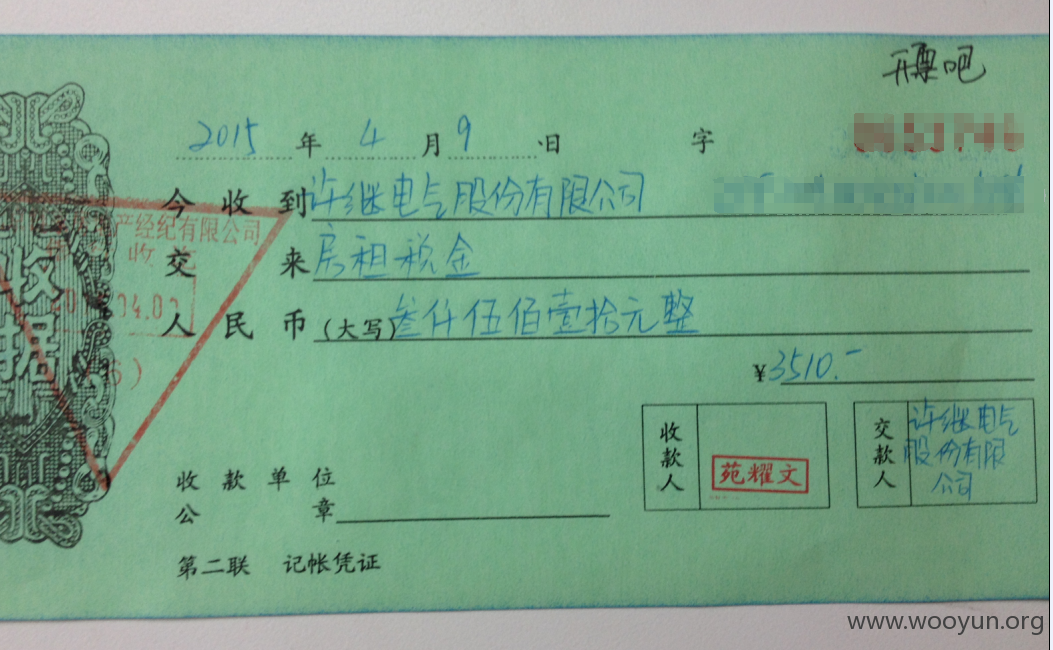 开票吧
2015 年 4 月 9 日 字
今收到许继电气股份有限公司
产经纪有限公司
收
交来房租税金
04.0
人民币(大写)叁仟伍佰壹拾元整
¥3510.-
收款人 苑耀文
交款人 许继电气股份有限公司
收款单位
公章
第二联 记帐凭证
www.wooyun.org